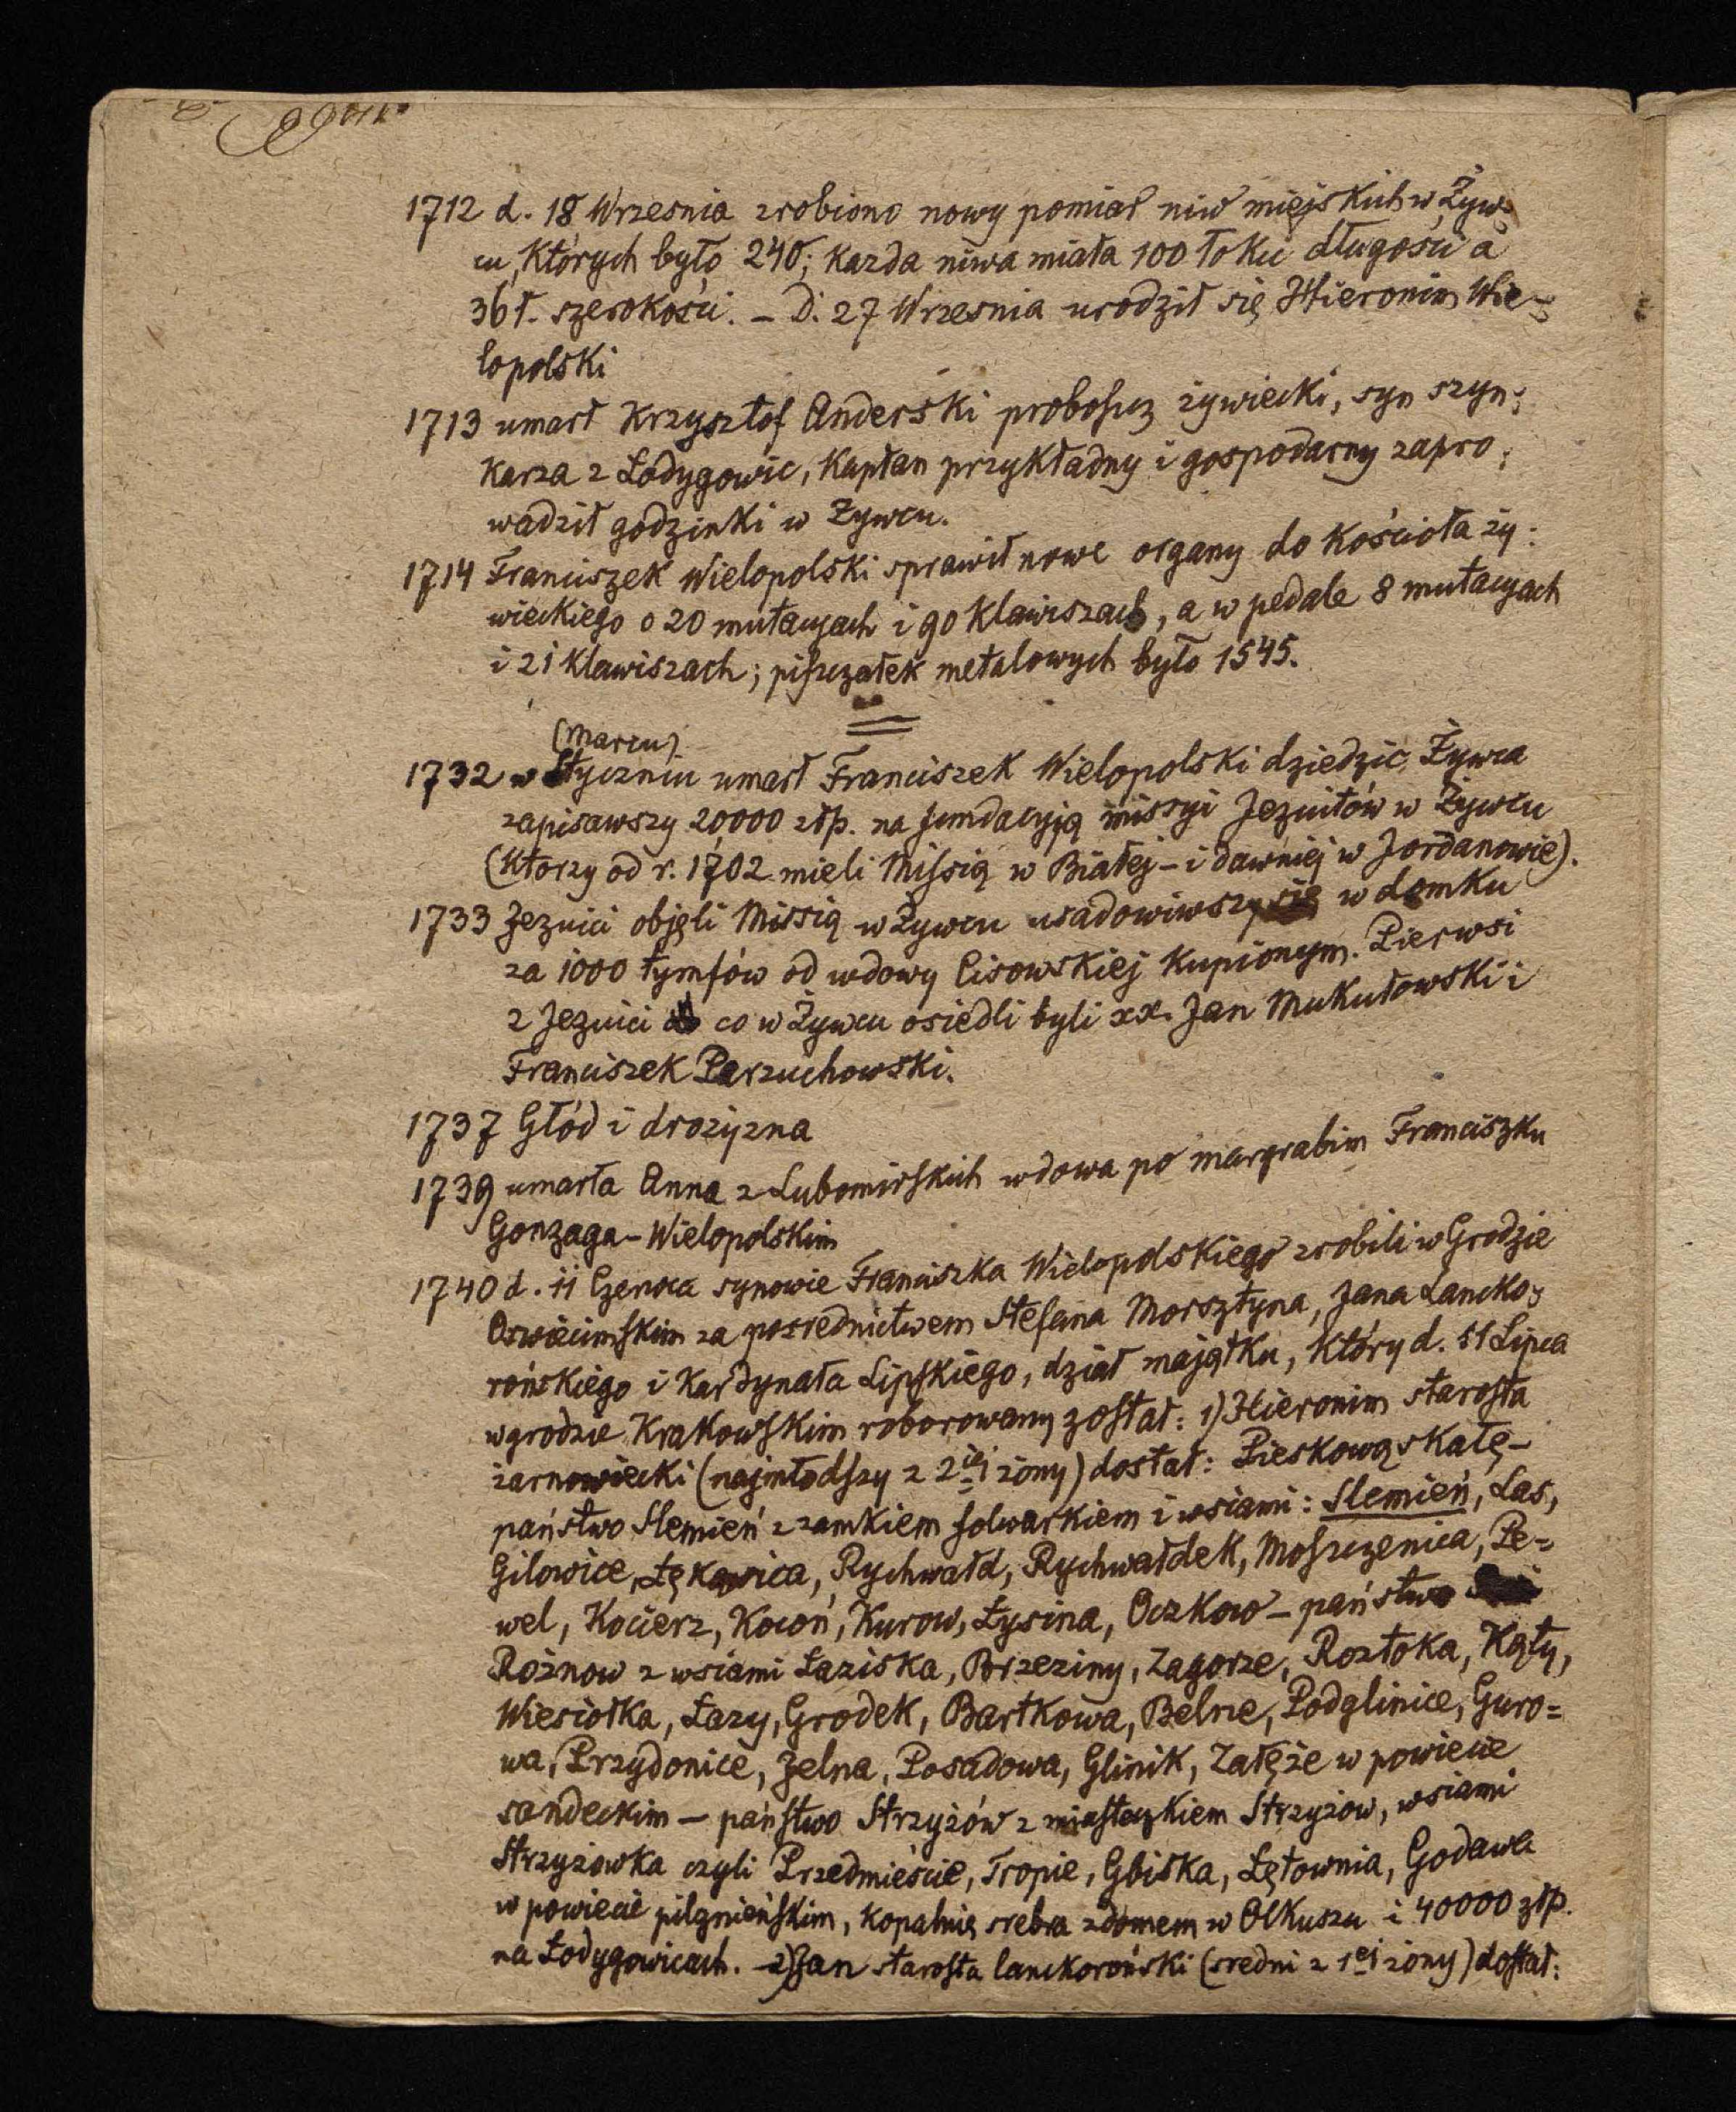 1712 d. 18 Wrzesnia zrobiono nowy pomiar niw miejskich w Żyw-
cu, których było 240; każda niwa miała 100 łokci długości a
36 ł. szerokości. – D. 27 Wrzesnia urodził się Hieronim Wie-
lopolski
1713 umarł Krzysztof Anderski proboszcz żywiecki, syn szyn-
karza z Łodygowic, kapłan przykładny i gospodarny zapro-
wadził godzinki w Żywcu.
1714 Franciszek Wielopolski sprawił nowe organy do kościoła ży-
wieckiego o 20 mutacyach i 90 klawiszach, a w pedale 8 mutacyach
i 21 klawiszach; piszczałek metalowych było 1545.
(Marcu)
1732 w Styczniu umarł Franciszek Wielopolski dziedzic Żywca
zapisawszy 20000 złp. na fundacyją missyi Jezuitów w Żywcu
(którzy od r. 1702 mieli Missią w Białej – i dawniej w Jordanowie).
1733 Jezuici objęli Missią w Żywcu usadowiwszy się w domku
za 1000 tymfów od wdowy Lisowskiej kupionym. Pierwsi
z Jezuici co w Żywcu osiedli byli xx. Jan Mukułowski i
Franciszek Parzuchowski.
1737 Głód i drożyzna
1739 umarła Anna z Lubomirskich wdowa po margrabim Franciszku
Gonzaga-Wielopolskim
1740 d. 11 Czerwca synowie Franciszka Wielopolskiego zrobili w Grodzie
Oswiecimskim za posrednictwem Stefana Morsztyna, Jana Lancko-
rońskiego i Kardynała Lipskiego, dział majątku, który d. 11 Lipca
w grodzie Krakowskim roborowany został: 1) Hieronim starosta
żarnowiecki (najmłodszy z 2iej żony) dostał: Pieskowąskałę –
państwo Slemień z zamkiem folwarkiem i wsiami: Slemień, Las,
Gilowice, Łękawica, Rychwałd, Rychwałdek, Moszczenica, Pe=
wel, Kocierz, Kocoń, Kurow, Łysina, Oczkow – państwo
Rożnow z wsiami Łaziska, Brzeziny, Zagorze, Roztoka, Kąty,
Wiesiołka, Łazy, Grodek, Bartkowa, Belne, Podglinice, Guro=
wa, Przydonice, Jelna, Posadowa, Glinik, Załęże w powiecie
sandeckim – państwo Strzyżów z miasteczkiem Strzyżow, wsiami
Strzyżowka czyli Przedmieście, Tropie, Gbiska, Łętownia, Godowa
w powiecie pilznieńskim, kopalnię srebra z domem w Olkuszu i 40000 złp.
na Łodygowicach. – 2) Jan starosta lanckoroński (sredni z 1ej żony) dostał: